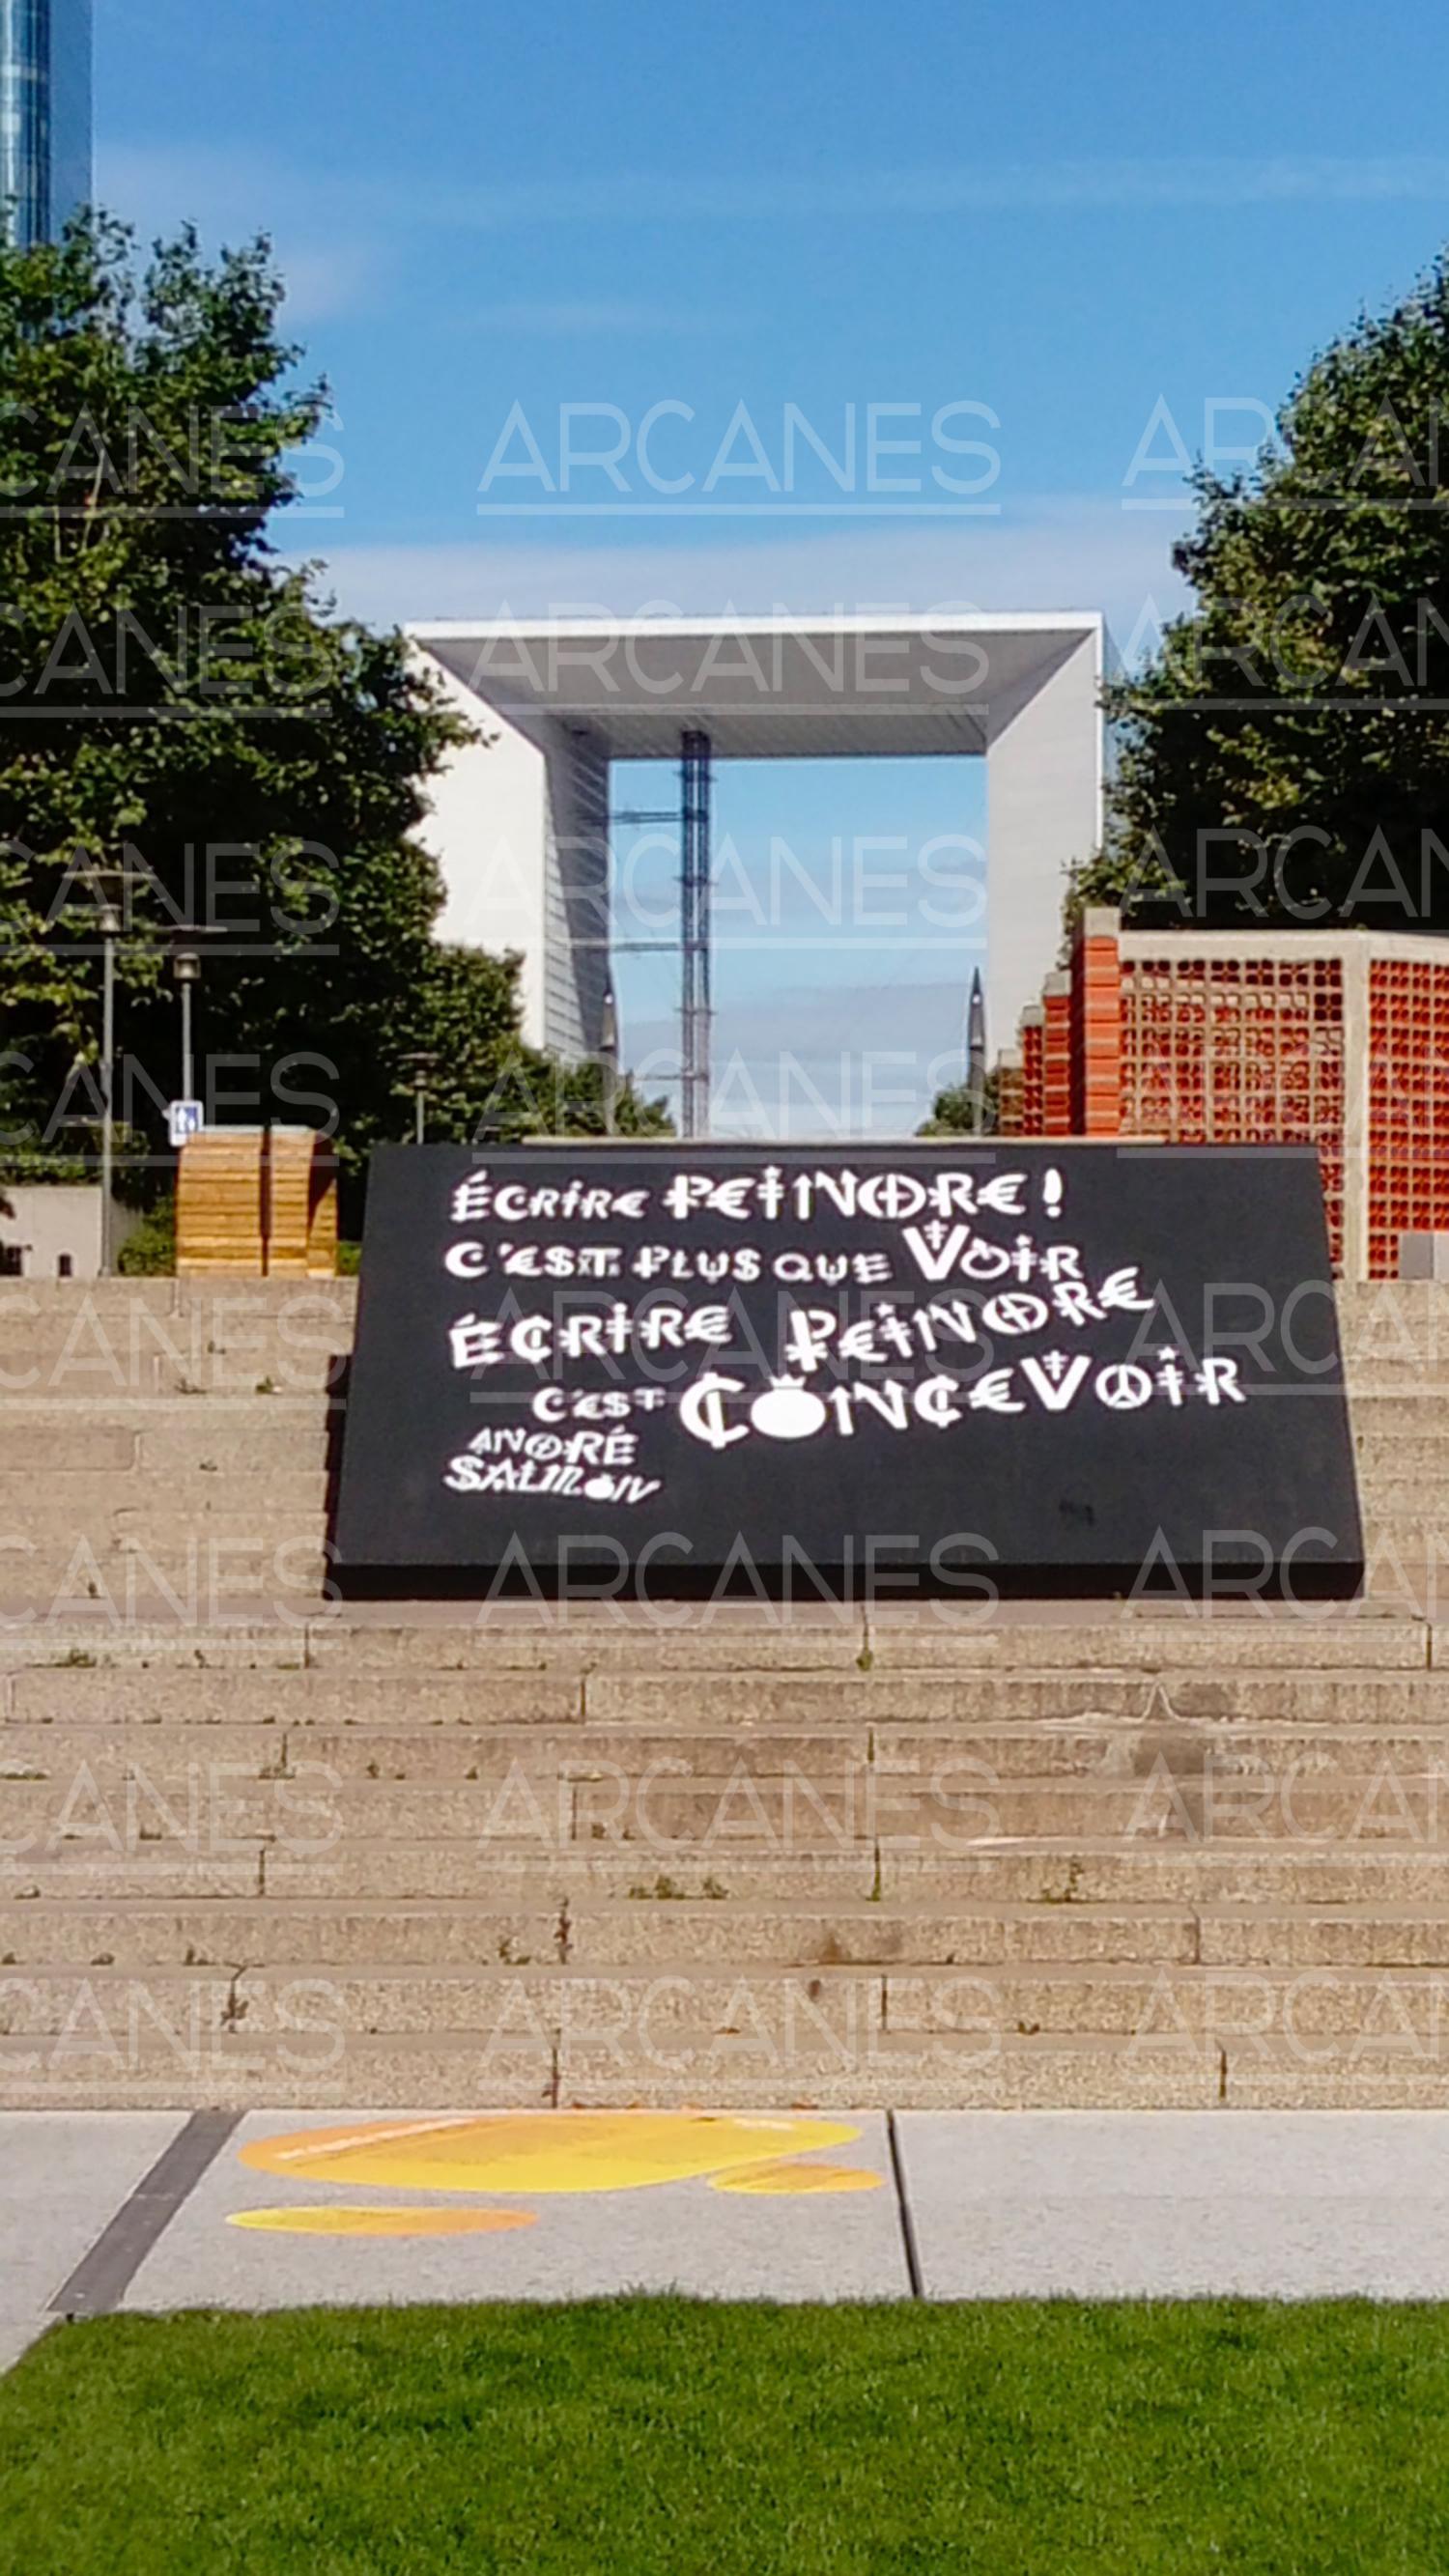 ÉCRIRE PEINDRE !
C'EST PLUS QUE VOIR
ÉCRIRE PEINDRE
C'EST CONCEVOIR
ANDRÉ
SALMON
ARCANES